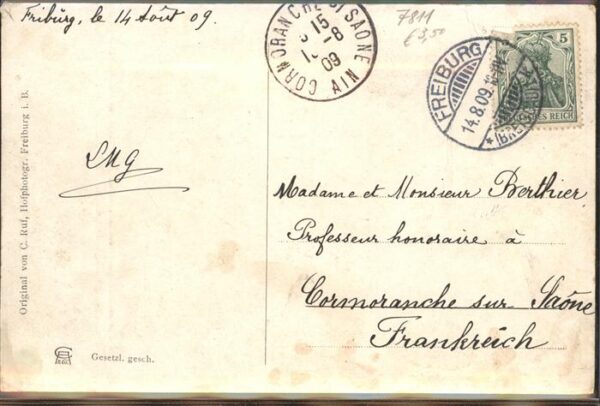 Friburg, le 14 Août 09.
CORMORANCHE S/ SAONE
15
-8
09
AIN
7811
€ 3,50
FREIBURG
14.8.09
5
DEUTSCHES REICH
LMG
Madame et Monsieur Berthier,
Professeur honoraire à
Cormoranche sur Saône
Frankreich
Original von C. Ruf, Hofphotogr. Freiburg i. B.
Gesetzl. gesch.